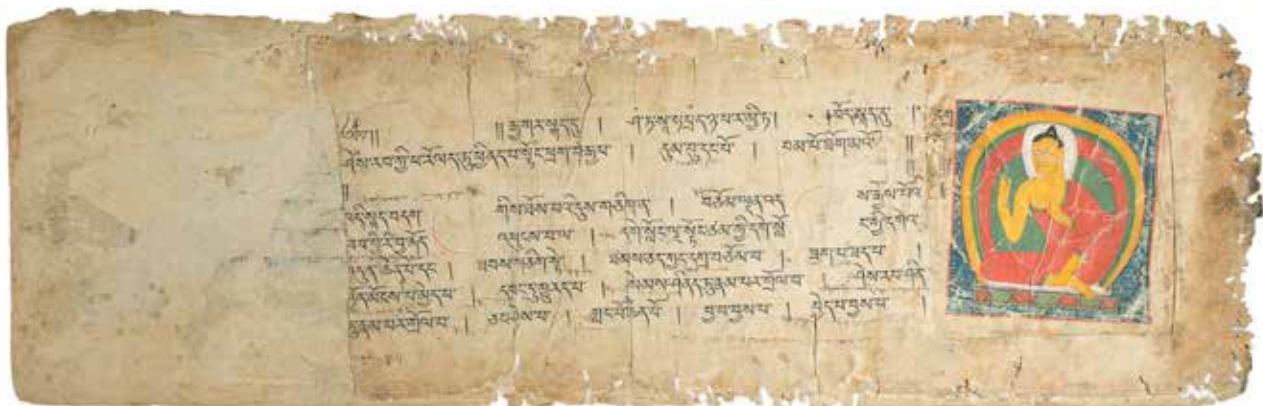 ༄༅།། །། རྒྱ་གར་སྐད་དུ། ཤ་ཏ་སཱ་ཧ་ པ་ར་མྱི་ཏ། བོད་སྐད་དུ།
ཤེས་རབ་ཀྱི་ཕ་རོལ་ད་ཏུ་ཕྱིནད་པ་སྟོང་ཕྲག་བརྒྱ་པ། དུམ་བུ་དང་པོ། བམ་པོ་ཐོག་མའོ།།
།། འདི་སྐད་བདག གིས་ཐོས་པའི་དུས་གཅིག་ན། བཅོམ་ལྡན་འདས་ རྒྱལ་པོའི་
རི་བྱ་རྐོད་ འཕུངས་པ་ལ། དགེ་སློང་ལྔ་སྟོང་ཙམ་གྱི་དགེ་སློང་གྱི་དགེའ་
འདུན་ཆེན་པོ་དང་། ཐབས་གཅིག་སྟེ། ཐམས་ཅད་ཀྱང་དགྲ་བཅོམ་བ། ཟག་པ་ཟད་པ།
ཉོན་མོངས་པ་མེད་པ། དབང་དུ་གྱུརད་པ། སེམས་ཤིནད་ཏུ་རྣམ་པར་གྲོལ་བ། ཤེས་རབ་ཤིནད་
ཏུ་རྣམ་པར་གྲོལ་བ། ཅང་ཤེས་པ། གླང་པོ་ཆེན་པོ། བྱ་བ་བྱས་པ། བྱེད་པ་བྱས་པ།